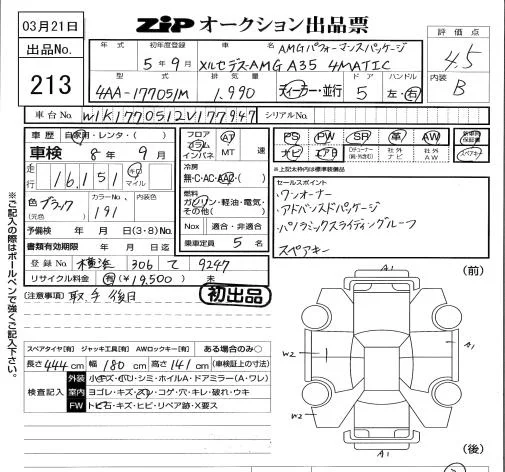 03月21日
ZIP オークション出品票
出品No.
213
評価点
4.5
内装
B
年式
初年度登録
5年9月
車名
AMGパフォーマンスパッケージ
メルセデス-AMG A35 4MATIC
型式
4AA-177051M
排気量
1,990
ディーラー・並行
ドア
5
ハンドル
左・右
車台No.
W1K1770512V177947
シリアルNo.
車歴
自家用・レンタ・( )
車検 8年9月
走行
16,151
キロ
マイル
色 ブラック
(元色)
カラーNo.
191
内装色
予備検 年 月 日(3・8)No.
書類有効期限 年 月 日迄
登録No. 横浜 306 て 9247
リサイクル料金 有(¥19,500) 未
フロア
コラム
インパネ
AT
MT
速
冷房
無・C・AC・AAC・( )
燃料
ガソリン・軽油・電気・
その他( )
Nox 適合・非適合
乗車定員 5名
PS PW SR 革 AW
ナビ エアB
社外ナビ
社外AW
新車時保証書
スペアキー
※上記太枠内は標準装備品
セールスポイント
・ワンオーナー
・アドバンスドパッケージ
・パノラミックスライディングルーフ
スペアキー
初出品
(注意事項) 取・手 後日
スペアタイヤ[有] ジャッキ工具[有] AWロックキー[有] ある場合のみ○
長さ444cm 幅180cm 高さ141cm (車検証上の寸法)
検査記入
外装 小キズ・小凹・シミ・ホイルA・ドアミラー(A・ワレ)
室内 ヨゴレ・キズ・スレ・コゲ・穴・キレ・破れ・ウキ
FW トビ石・キズ・ヒビ・リペア跡・X要ス
※ご記入の際はボールペンで強くご記入下さい。
(前)
A1
W2
A1
W2
A1
(後)